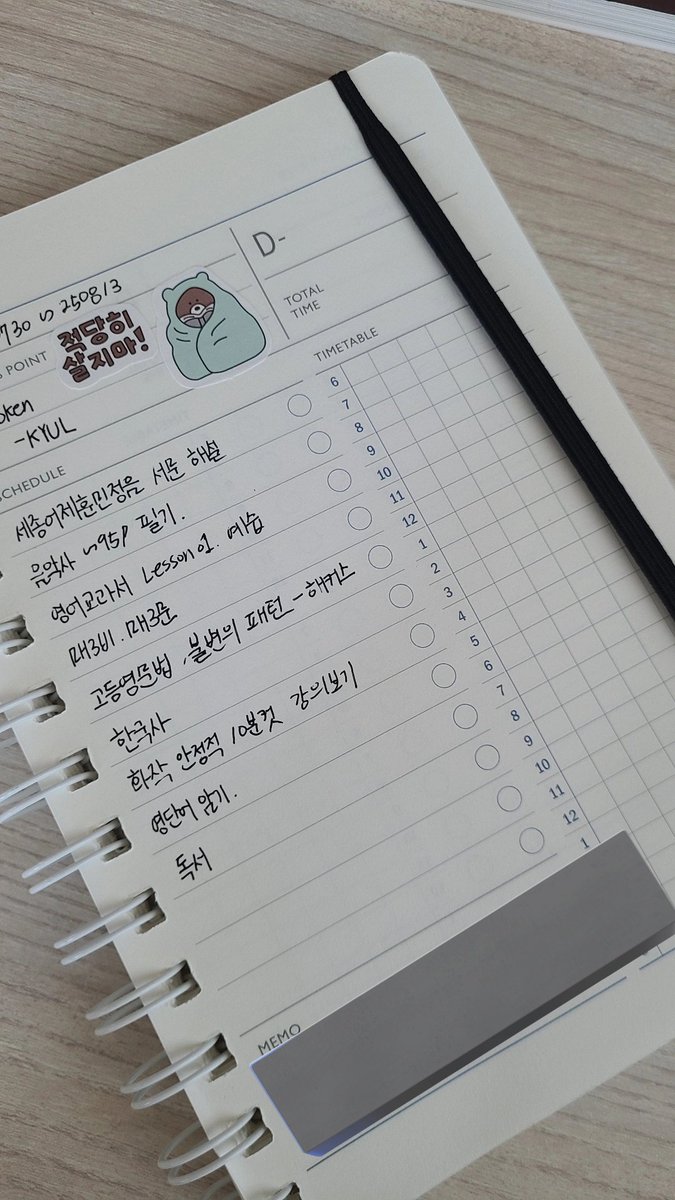 730 ~ 250813
D-
TOTAL
TIME
POINT
적당히
살지마!
oken
-KYUL
SCHEDULE
TIMETABLE
세종어제훈민정음 서문 해설
음악사 ~95p 필기.
영어교과서 Lesson 01. 예습
매3비. 매3문
고등영문법, 불변의 패턴 - 해커스
한국사
화작 안정적 10분컷 강의보기
영단어 암기.
독서
6
7
8
9
10
11
12
1
2
3
4
5
6
7
8
9
10
11
12
1
MEMO